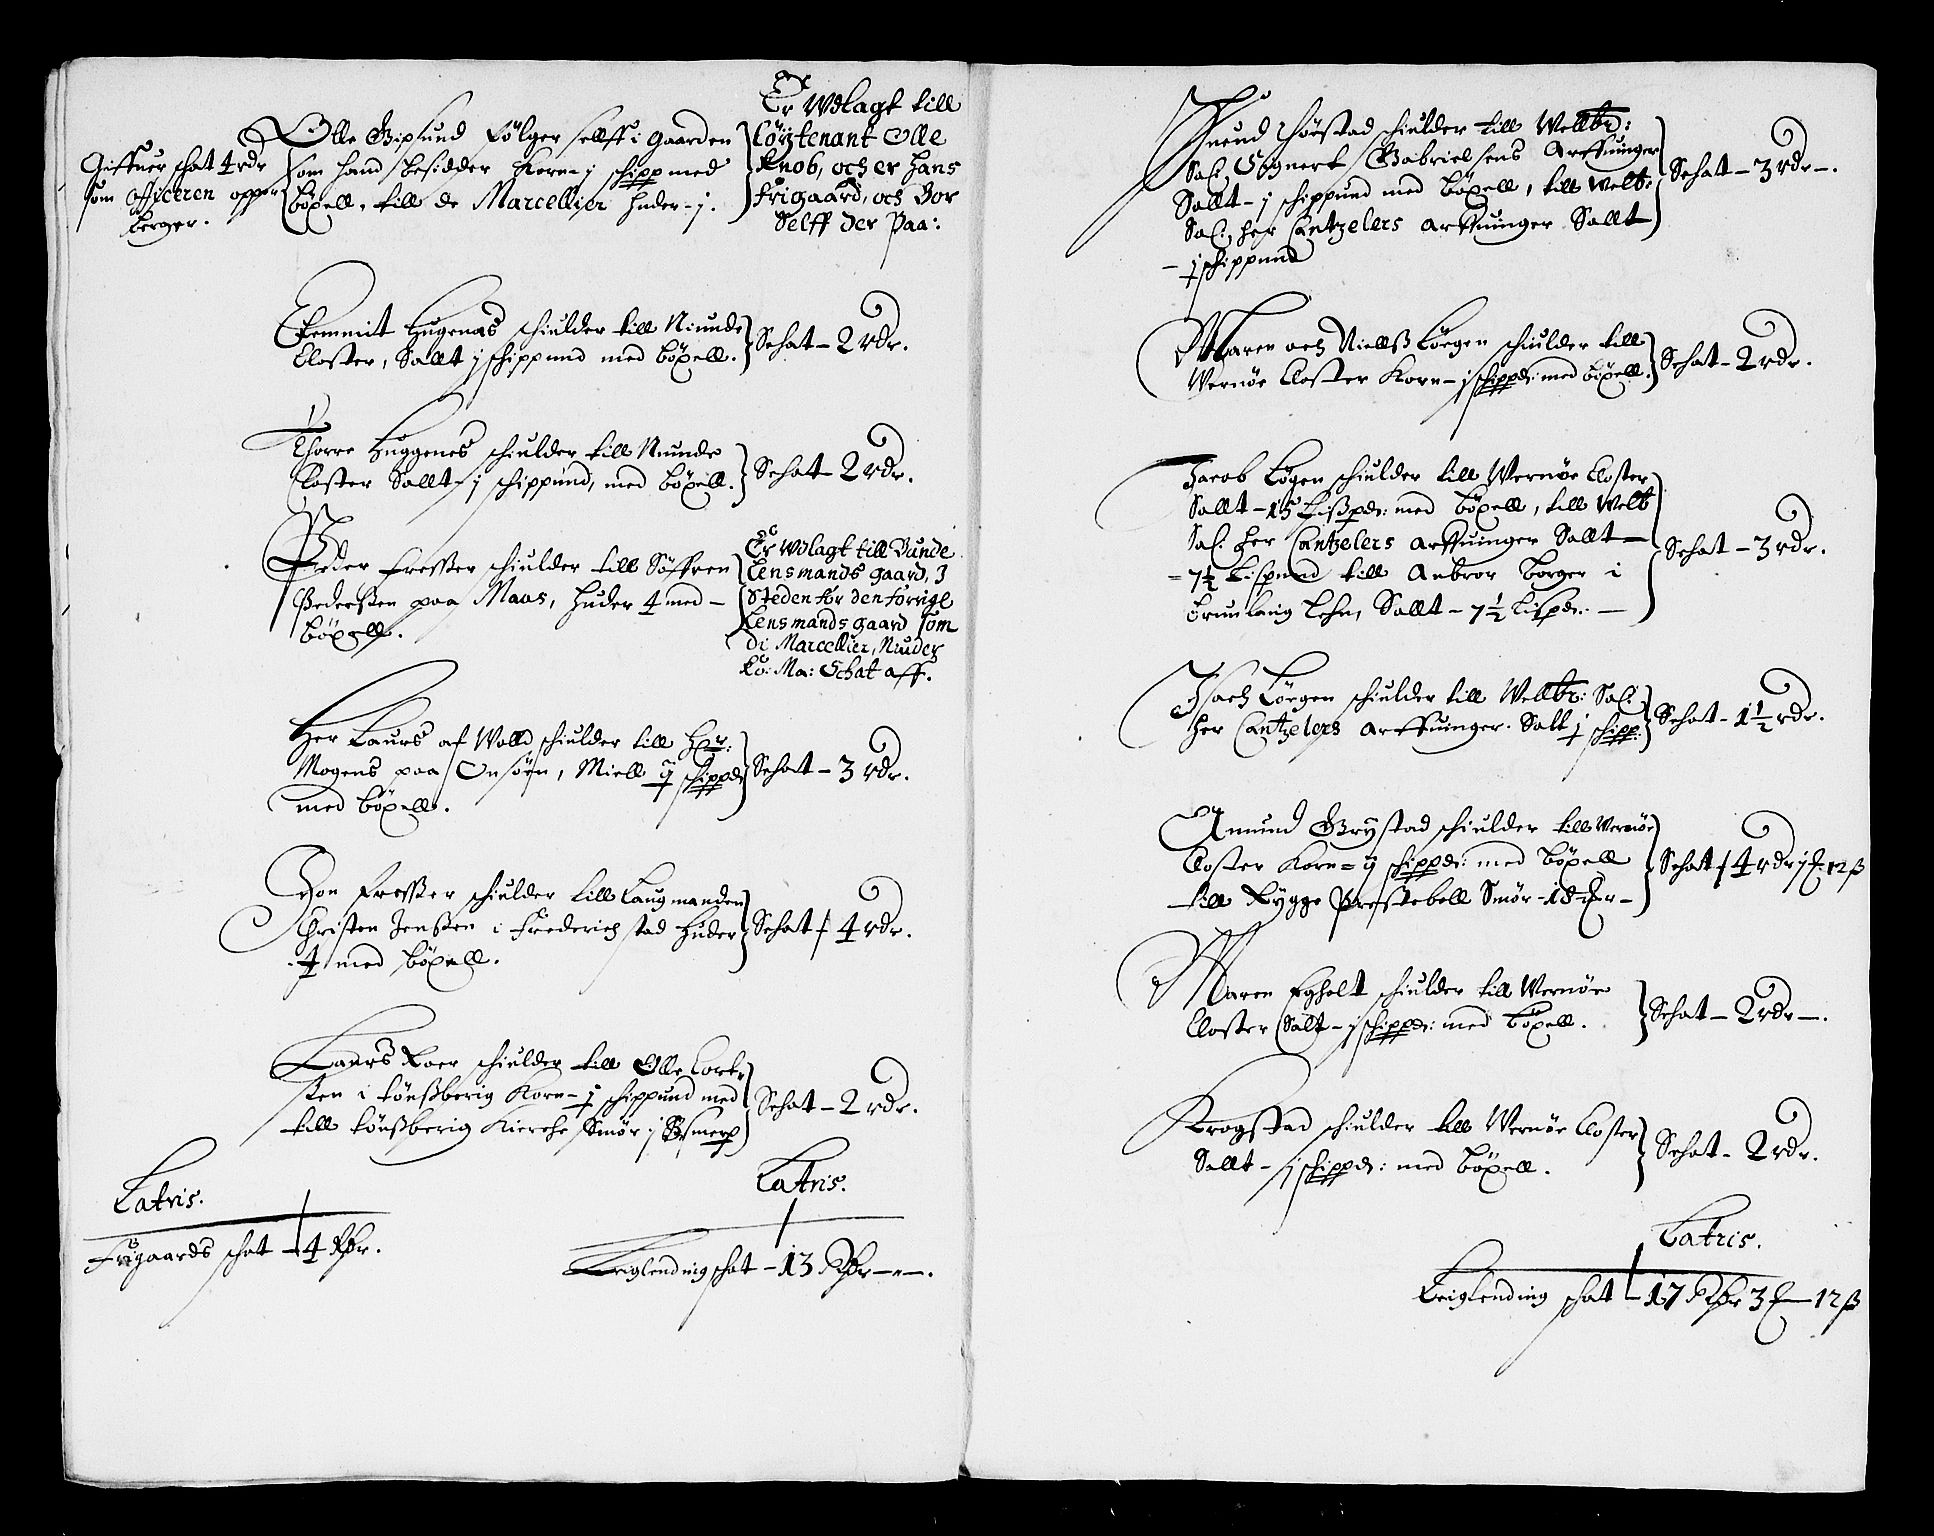 Giffuer schat 4 rdr
som officeren opper
berger.
Olle Gipsund følger sellff i gaarden
som hand besidder Korn - j schipp med
böxell, till de Marcellier huder - j.
Er Wdlagt till
Löytenant Olle
Knob, och er hans
frigaard, och Bor
Selff der Paa:
Emmit Hugenas schiulder till Niunde
Closter, Sallt j schippund med böxell.
Schat - 2 rdr.
Thorre Huggenes schiulder till Niunde
Closter Sallt - j schippund, med böxell.
Schat - 2 rdr.
Peder Fresßer schiulder till Söffren
Pederßen paa Maas, huder 4 med -
böxell.
Er Wdlagt till Bunde
Lensmands gaard, J
Steden for den forrige
Lensmands gaard som
di Marcellier, Niuder
Ko: Ma: Schat aff.
Her Laurs af Wolld schiulder till Her:
Mogens paa Onsöen, Miell ij schippd
med böxell.
Schat - 3 rdr.
Jon Fresßer schiulder till Laugmanden
Christen Jenßen i Friderichstad huder
4 med böxell.
Schat - 4 rdr.
Laurs Roer schiulder till Olle Lort-
sten i tönßberig Korn - j schippund med
till tönßberig Kierche Smör j Bismerp
Schat - 2 rdr.
Latris.
Frigaards schat - 4 Rdr.
Latris.
Leiglending schat - 13 Rdr - - .
Knud Thörstad schiulder till Wellbr:
Sal. Sognert Gabrielsens Arffuinger
Sallt - j schippund med böxell, till Welb:
Sal. her Cantzelers arffuinger Sallt
- j schippund
Schat - 3 rdr - .
Maren och Niellß Löegen schiulder till
Wernöe Closter Korn - j schippd: med böxell.
Schat - 2 rdr.
Jacob Løgen schiulder till Wernöe Closter
Sallt - 15 Lißpd: med böxell, till Welb
Sal. her Cantzelers arffuinger Sallt -
= 7½ Lispund till Anbror borger i
Brunlaug Lehn, Sallt - 7½ Lispd: -
Schat - 3 rdr.
Isach Löegen schiulder till Wellbr: Sal.
her Cantzelers arffuinger. Salt j schipp:
Schat - 1½ rdr.
Amund Grystad schiulder till Wernöe
Closter Korn = ij schippd: med böxell
till Rygge Prestebell Smör - 18 -
Schatt 4 rdr j 12 ß
Maren Egholt schiulder till Wernöe
Closter Salt - j schippd: med böxell.
Schat - 2 rdr - .
Krogstad schiulder till Wernöe Closter
Sallt - j schippd: med böxell.
Schat - 2 rdr.
Latris.
Leiglending schat - 17 Rdr 3 - 12 ß